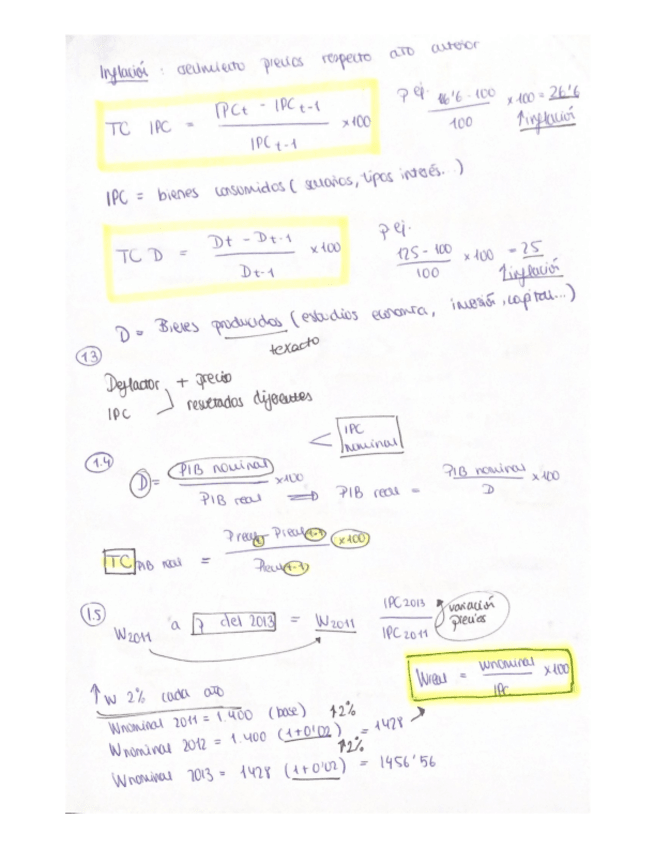 Inflación : crecimiento precios respecto año anterior
TC IPC = IPCt - IPC t-1 / IPC t-1 x100
p ej. 126'6 - 100 / 100 x 100 = 26'6
↑inflación
IPC = bienes consumidos ( salarios, tipos interés. . )
TC D = Dt - Dt-1 / Dt-1 x 100
p ej.
125 - 100 / 100 x 100 = 25
↑inflación
D = Bienes producidos (estudios economía, inversión, capital...)
texacto
1.3
Deflactor + precio
IPC resultados diferentes
IPC
nominal
1.4 D = PIB nominal / PIB real x100 ⟹ PIB real = PIB nominal / D x 100
TC PIB real = Preal t - Preal t-1 / Preal t-1 x100
1.5
W2011 a del 2013 = W2011 IPC 2013 / IPC 2011 variación precios
Wreal = Wnominal / IPC x100
↑ W 2% cada año
Wnominal 2011 = 1.400 (base) ↑2%
Wnominal 2012 = 1.400 (1+0'02) = 1428
↑2%
Wnominal 2013 = 1428 (1+0'02) = 1456'56